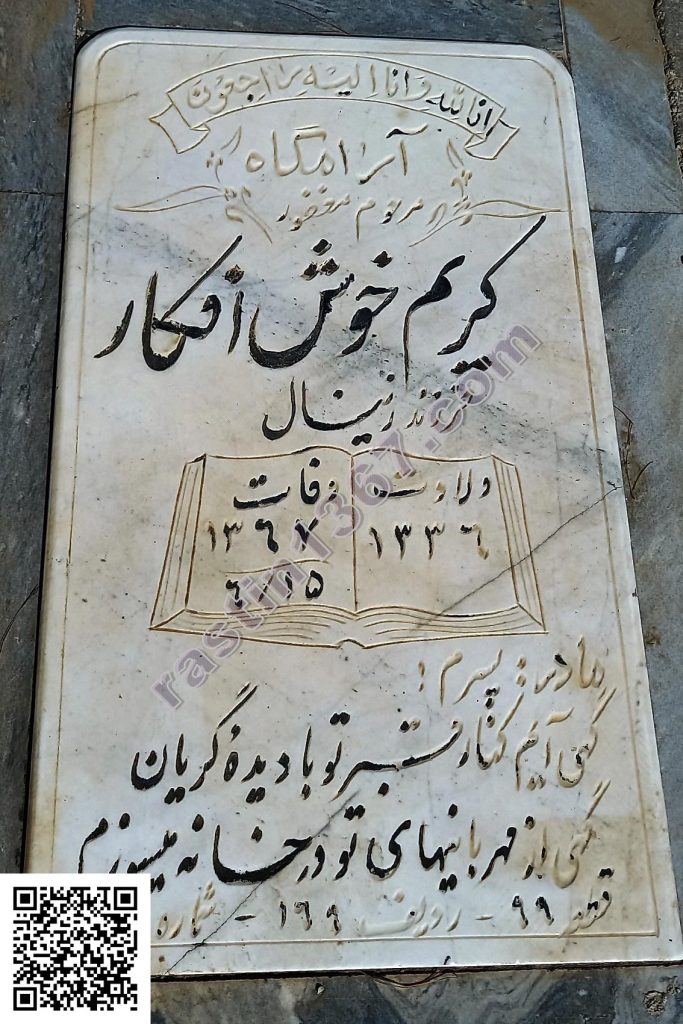 انا لله و انا الیه راجعون
آرامگاه
مرحوم مغفور
کریم خوش افکار
فرزند زینال
ولادت وفات
۱۳۳۶ ۱۳۶۷
۶/۱۵
مادر: پسرم!
گهی آیم کنار قبر تو با دیدهٔ گریان
گهی از مهربانیهای تو در خانه میسوزم
قطعه ۹۹ - ردیف ۱۶۹ - شماره
rastin1367.com